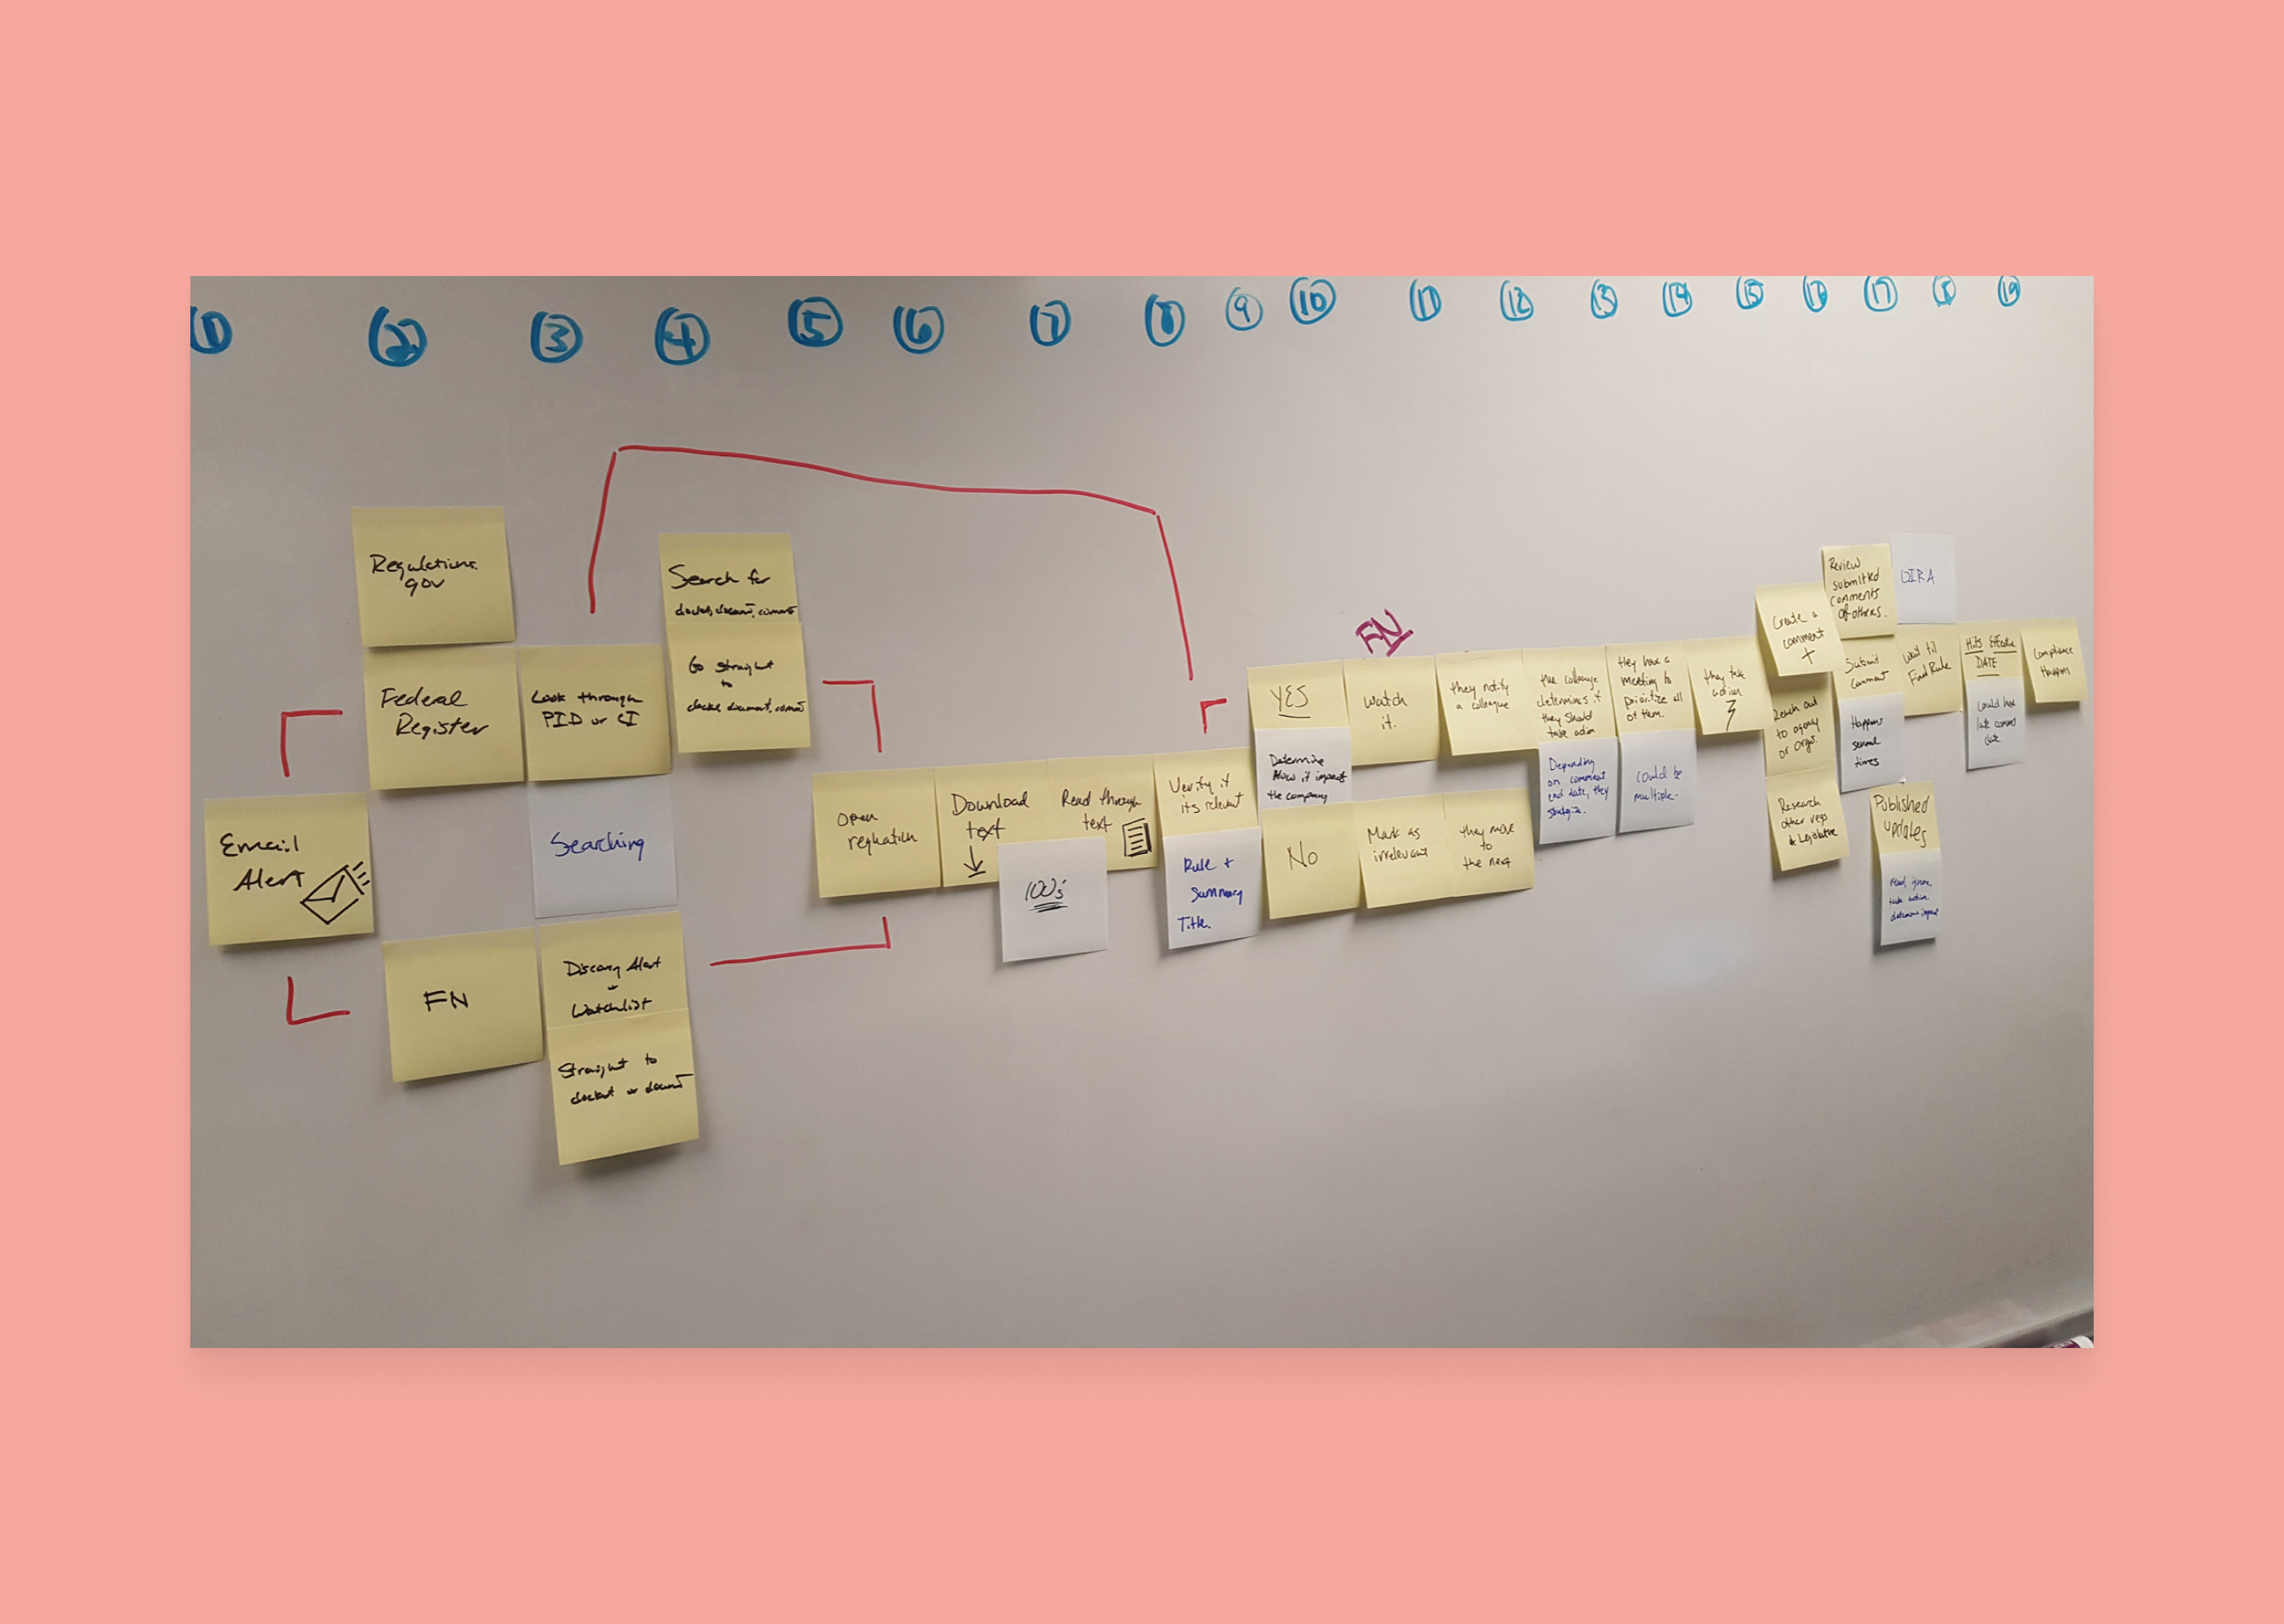 1
2
3
4
5
6
7
8
9
10
11
12
13
14
15
16
17
18
19
Email
Alert
Regulations.
gov
Federal
Register
FN
Look through
PID or CI
Searching
Discovery Alert
or
Watchlist
Straight to
docket or document
Search for
docket, document, comment
Go straight
to
docket, document, comment
Open
regulation
Download
text
100's
Read through
text
Verify if
its relevant
Rule +
Summary
Title.
YES
Determine
How it impact
the company
NO
FN
Watch
it.
Mark as
irrelevant
they notify
a colleague
they move
to
the next
the colleague
determines if
they should
take action
Depending
on comment
end date, they
strategize.
they have a
meeting to
prioritize all
of them.
could be
multiple.
they take
action
Create a
comment
+
Reach out
to agency
or Orgs.
Research
other regs
& Legislative
Review
submitted
comments
of others.
Submit
Comment
Happens
several
times
OIRA
Wait til
Final Rule
Published
updates
read, ignore,
take action,
determine impact
Hits Effective
DATE
Could have
late comment
date
Compliance
Happens